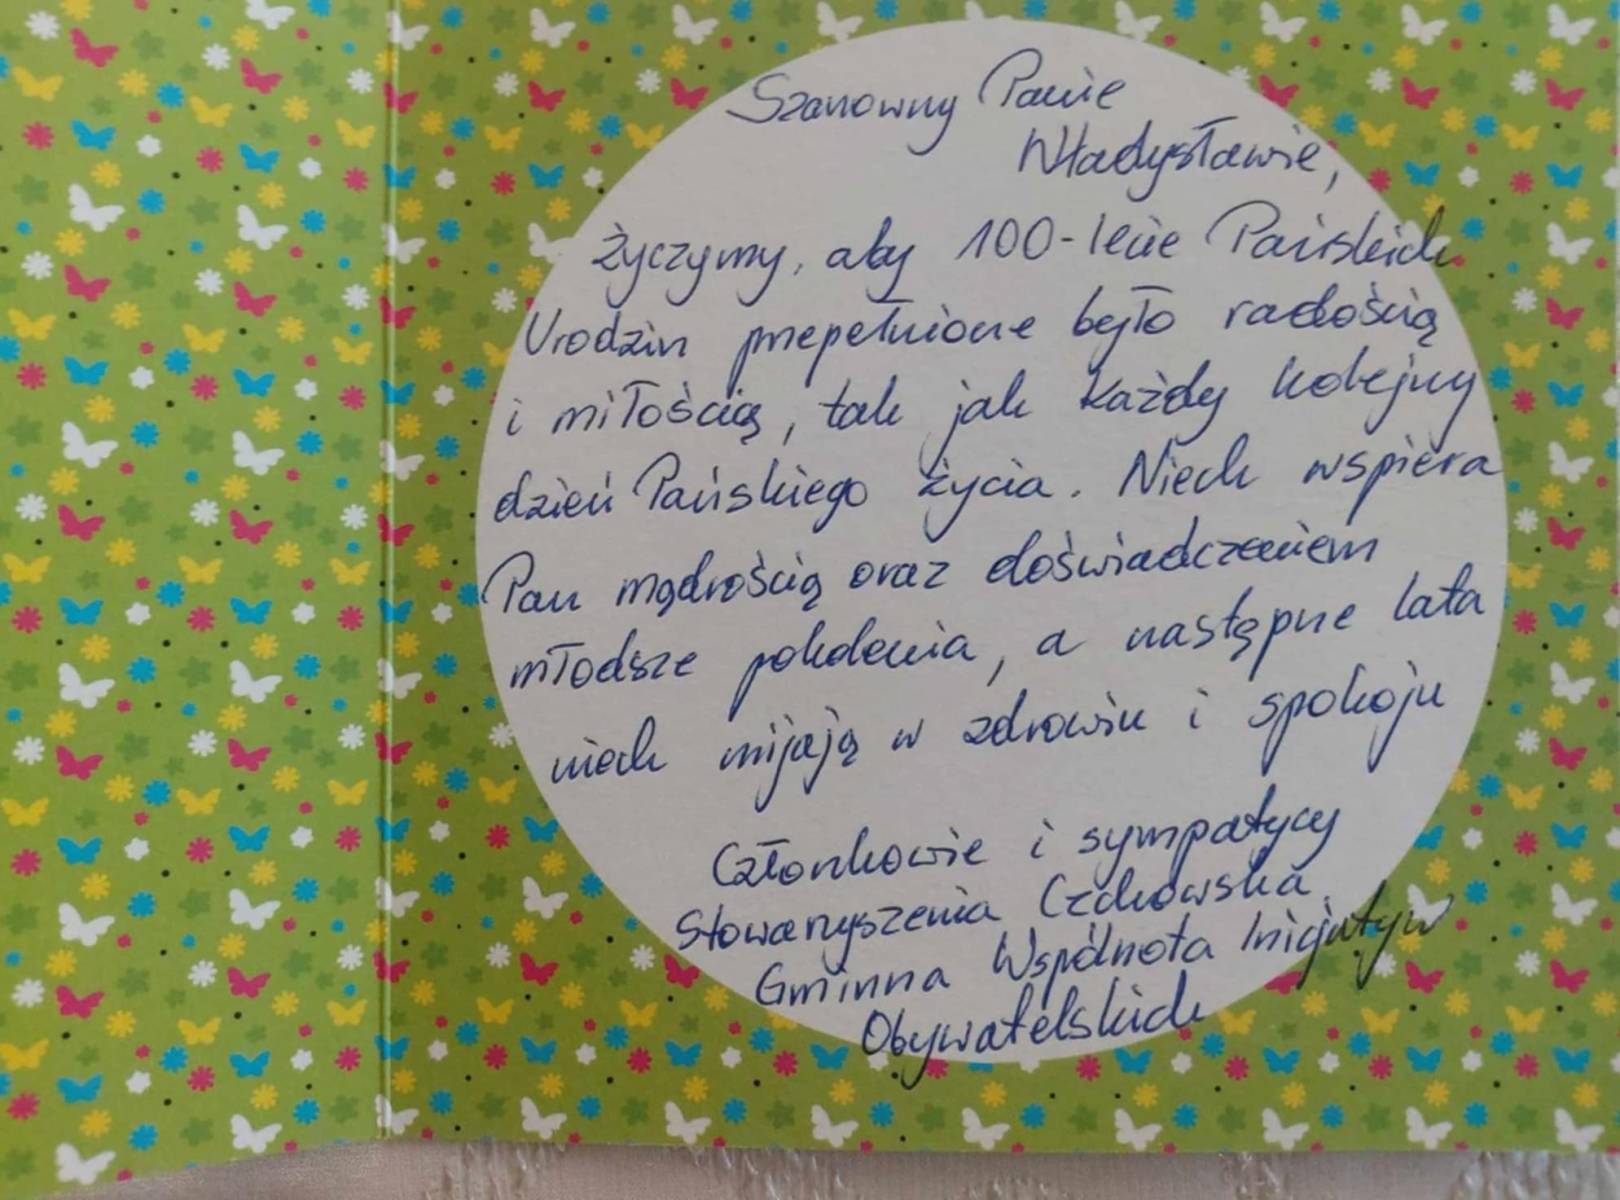 Szanowny Panie
Władysławie,
życzymy, aby 100-lecie Pańskich
Urodzin przepełnione było radością
i miłością, tak jak każdy kolejny
dzień Pańskiego życia. Niech wspiera
Pan mądrością oraz doświadczeniem
młodsze pokolenia, a następne lata
niech mijają w zdrowiu i spokoju
Członkowie i sympatycy
Stowarzyszenia Czchowska
Gminna Wspólnota Inicjatyw
Obywatelskich